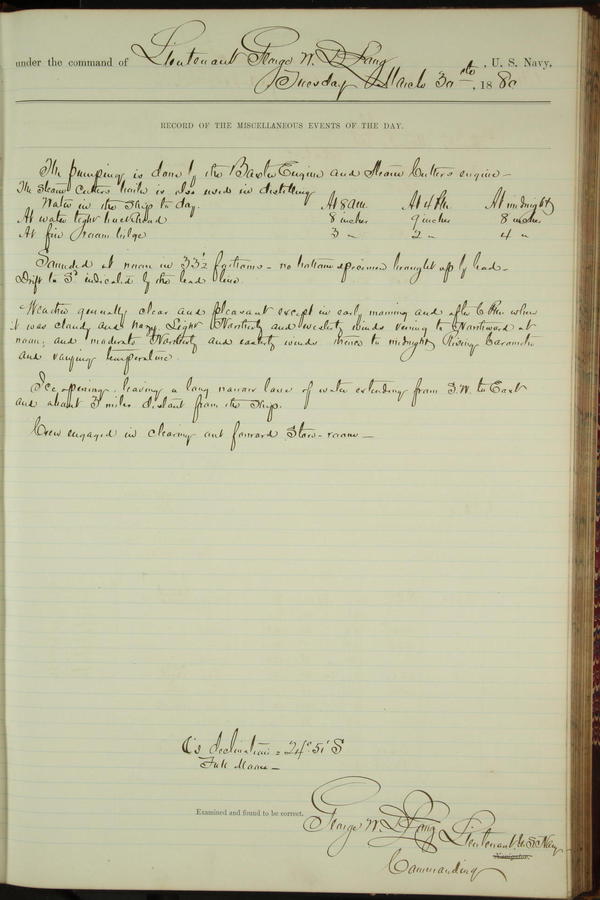 under the command of Lieutenant George W. De Long, U. S. Navy,
Tuesday March 30th, 1880
RECORD OF THE MISCELLANEOUS EVENTS OF THE DAY.
The pumping is done by the Baxter Engine and Steam Cutters engine—
The steam cutters boiler is also used in distilling
Water in the ship to day. At 8 am. At 4 P.M. At midnight
At water tight bulkhead 8 inches 9 inches 8 inches
At fire room bilge 3 " 2 " 4 "
Sounded at noon in 33½ fathoms – no bottom specimen brought up by lead–
Drift to Sd indicated by the lead line.
Weather generally clear and pleasant except in early morning and after 6 P.M. when
it was cloudy and hazy. Light Northerly and westerly winds veering to Northward at
noon; and moderate Northerly and easterly winds thence to midnight. Rising barometer
and varying temperature.
Ice opening, leaving a long narrow lane of water extending from S.W. to East
and about 3 miles distant from the ship.
Crew engaged in clearing out forward store-room—
☾'s declination = 24° 51' S
Full Moon—
Examined and found to be correct.
George W. De Long Lieutenant U.S. Navy
Navigator.
Commanding